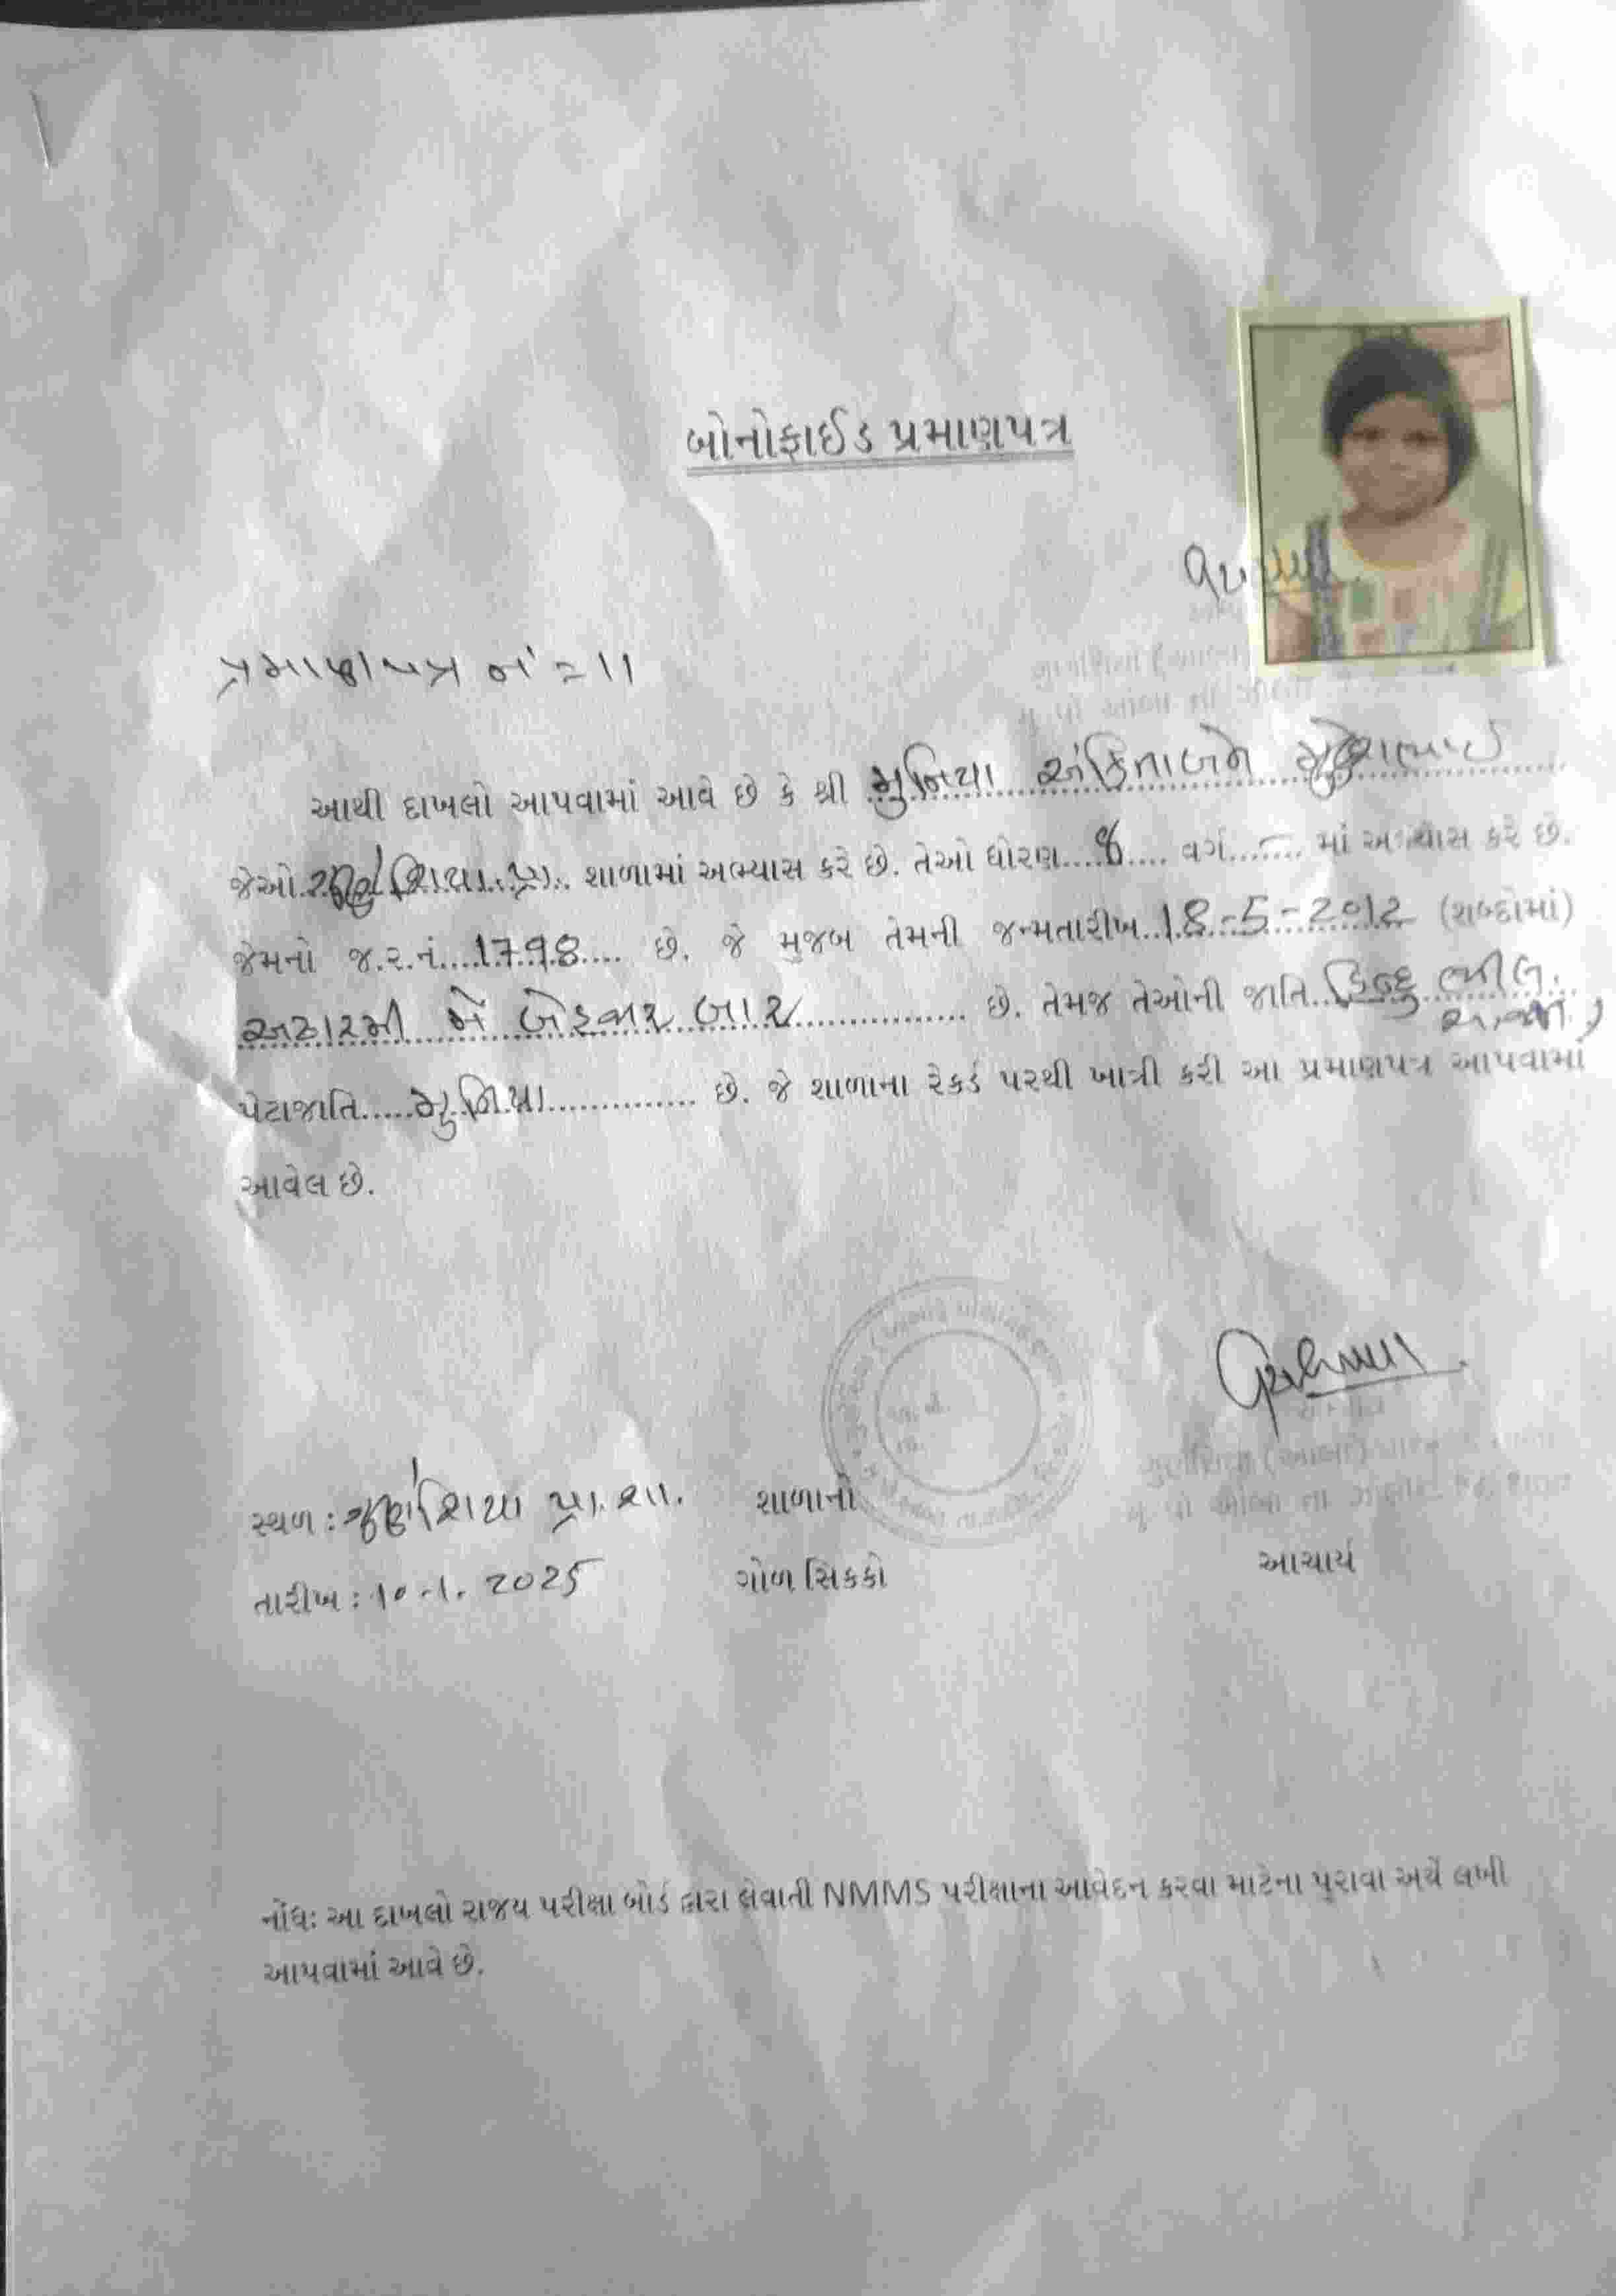 બોનોફાઈડ પ્રમાણપત્ર
પ્રમાણપત્ર નં = 11
આથી દાખલો આપવામાં આવે છે કે શ્રી મુનિયા અંકિતાબેન
જેઓ શાળામાં અભ્યાસ કરે છે. તેઓ ધોરણ....8.... વર્ગ....... માં અભ્યાસ કરે છે.
જેમનો જ.ર.નં....1798.... છે. જે મુજબ તેમની જન્મતારીખ..18-5-2012 (શબ્દોમાં)
અઢારમી મે બેહજાર બાર છે. તેમજ તેઓની જાતિ..હિન્દુ ભીલ.
પેટાજાતિ.....મુનિયા.............. છે. જે શાળાના રેકર્ડ પરથી ખાત્રી કરી આ પ્રમાણપત્ર આપવામાં
આવેલ છે.
સ્થળ : પ્રા. શા. શાળાનો
તારીખ : 10-1. 2025 ગોળ સિક્કો આચાર્ય
નોંધ: આ દાખલો રાજય પરીક્ષા બોર્ડ દ્વારા લેવાતી NMMS પરીક્ષાના આવેદન કરવા માટેના પુરાવા અર્થે લખી
આપવામાં આવે છે.